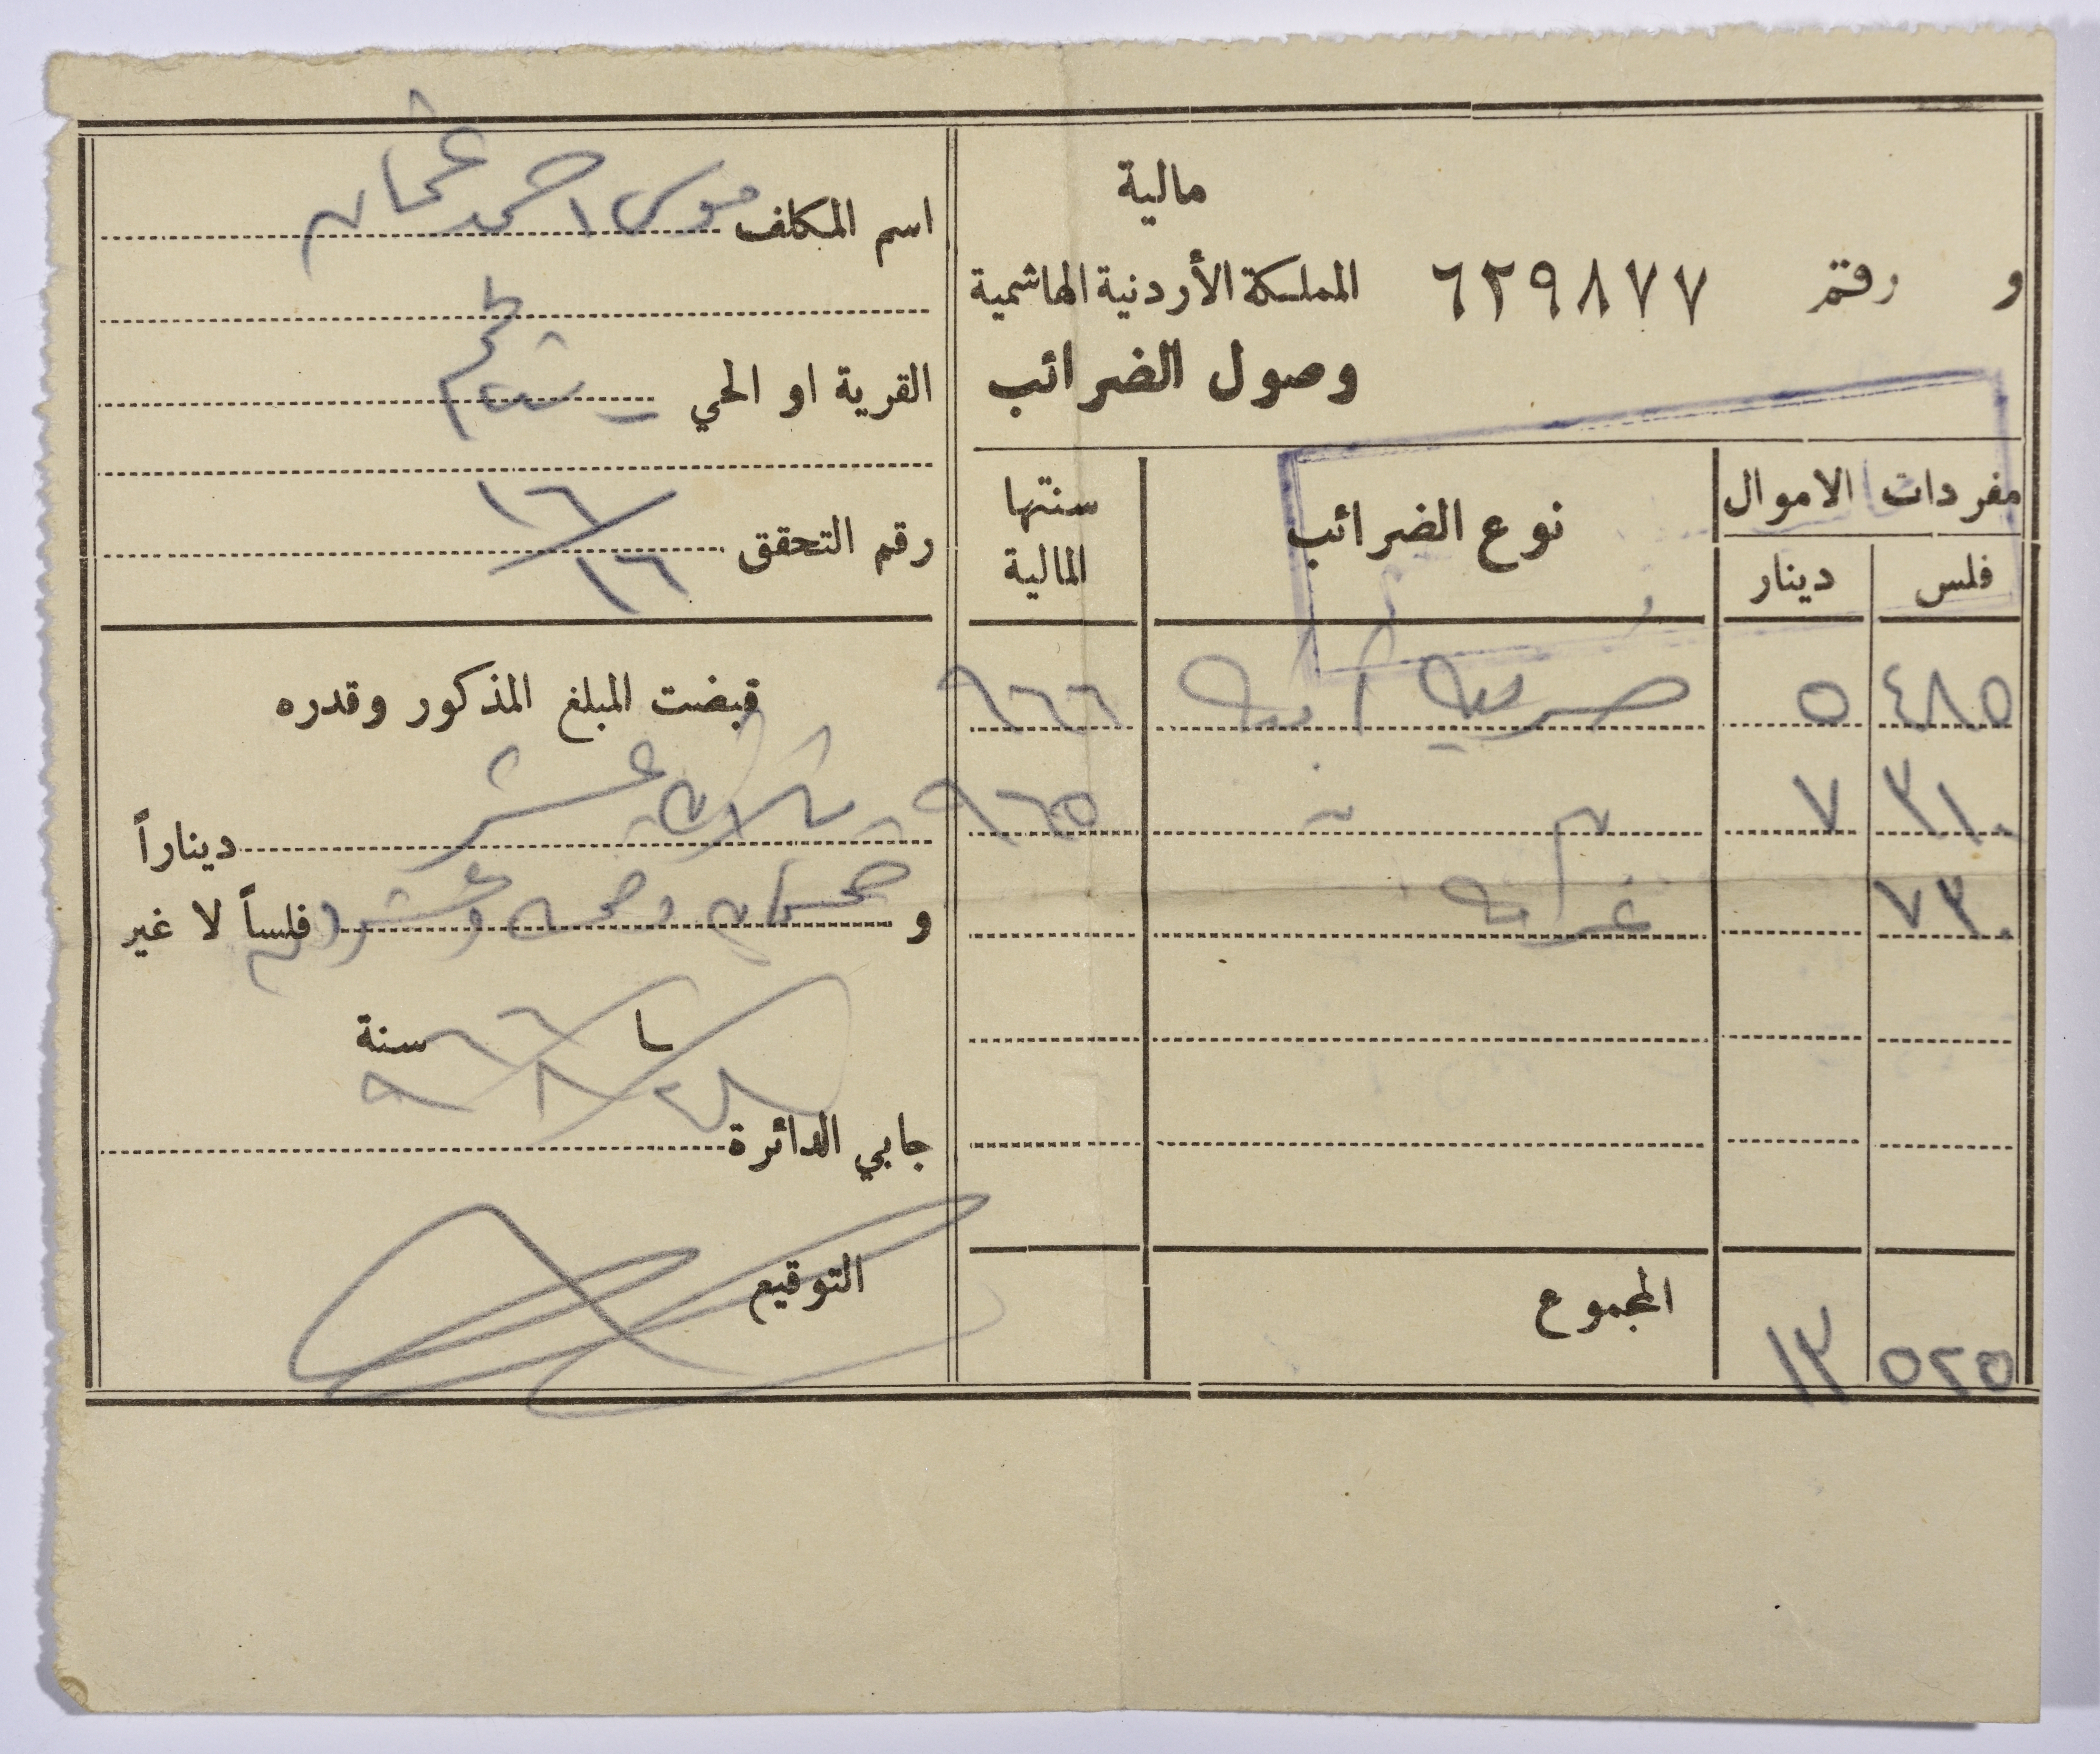 مالية
و رقم ٦٢٩٨٧٧ المملكة الأردنية الهاشمية
وصول الضرائب
مفردات الاموال نوع الضرائب سنتها المالية
فلس دينار
٤٨٥ ٥ ضريبة ابنية ٩٦٦
٣١٠ ٧ ٩٦٥
٧٣٠ غرامة
المجموع
٥٢٥ ١٣
اسم المكلف موسى احمد عثمان
القرية او الحي
رقم التحقق ١٦/١٦
قبضت المبلغ المذكور وقدره
ثلاثة عشر ديناراً
و خمسماية وخمسة وعشرون فلساً لا غير
٢٨/٨/٩٦٦ سنة
جابي الدائرة
التوقيع